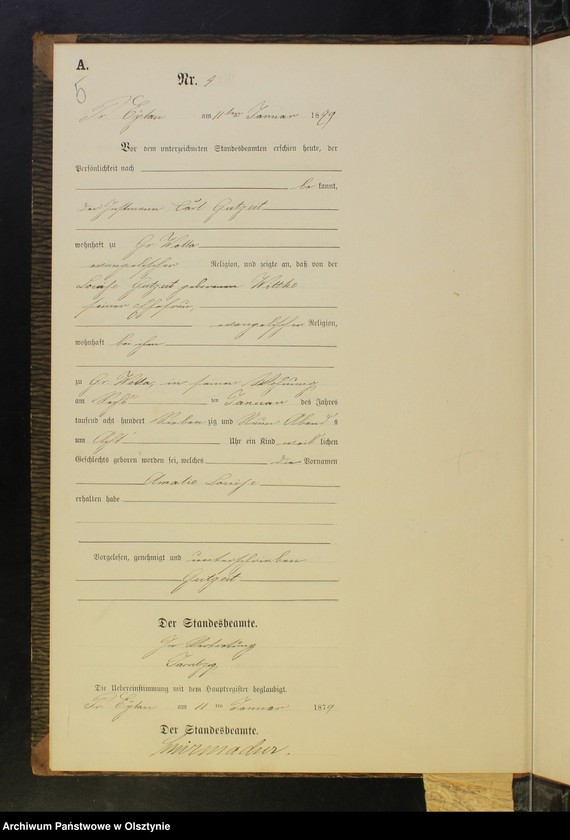 A.
5
Nr. 9
Pr. Eylau am 11ten Januar 1879
Vor dem unterzeichneten Standesbeamten erschien heute, der
Persönlichkeit nach
be kannt,
der Instmann Carl Gutzeit
wohnhaft zu Gr. Waldeck
evangelischer Religion, und zeigte an, daß von der
Louise Gutzeit geborenen Wittke
seiner Ehefrau,
evangelischer Religion,
wohnhaft bei ihm
zu Gr. in seiner Wohnung
am ten Januar des Jahres
tausend acht hundert sieben zig und Neun Abend s
um Acht Uhr ein Kind weib lichen
Geschlechts geboren worden sei, welches die Vornamen
Amalie Louise
erhalten habe
Vorgelesen, genehmigt und unterschrieben
Gutzeit
Der Standesbeamte.
In Vertretung
Die Uebereinstimmung mit dem Hauptregister beglaubigt.
Pr. Eylau am 11 ten Januar 1879
Der Standesbeamte.
Archiwum Państwowe w Olsztynie